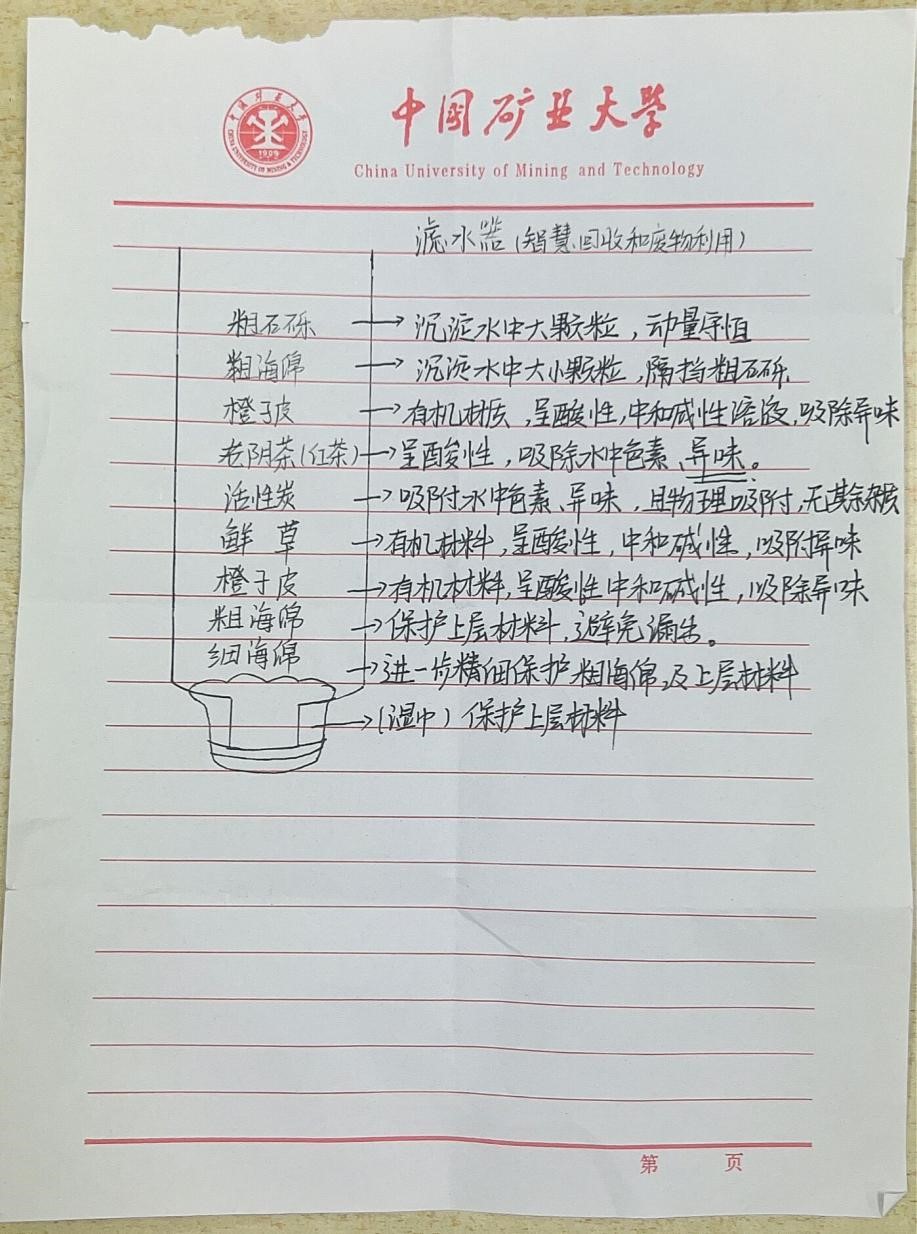 中国矿业大学
China University of Mining and Technology
中国矿业大学
CHINA UNIVERSITY OF MINING & TECHNOLOGY
1909
滤水器(智慧回收和废物利用)
粗石砾 → 沉淀水中大颗粒,动量守恒
粗海绵 → 沉淀水中大小颗粒,隔挡粗石砾
橙子皮 → 有机材质,呈酸性,中和碱性溶液,吸除异味
老阴茶(红茶) → 呈酸性,吸除水中色素、异味。
活性炭 → 吸附水中色素、异味,且物理吸附,无其余杂质
鲜草 → 有机材料,呈酸性,中和碱性,吸附异味
橙子皮 → 有机材料,呈酸性中和碱性,吸除异味
粗海绵 → 保护上层材料,避免漏出。
细海绵 → 进一步精细保护粗海绵,及上层材料
→ (湿巾)保护上层材料
第 页